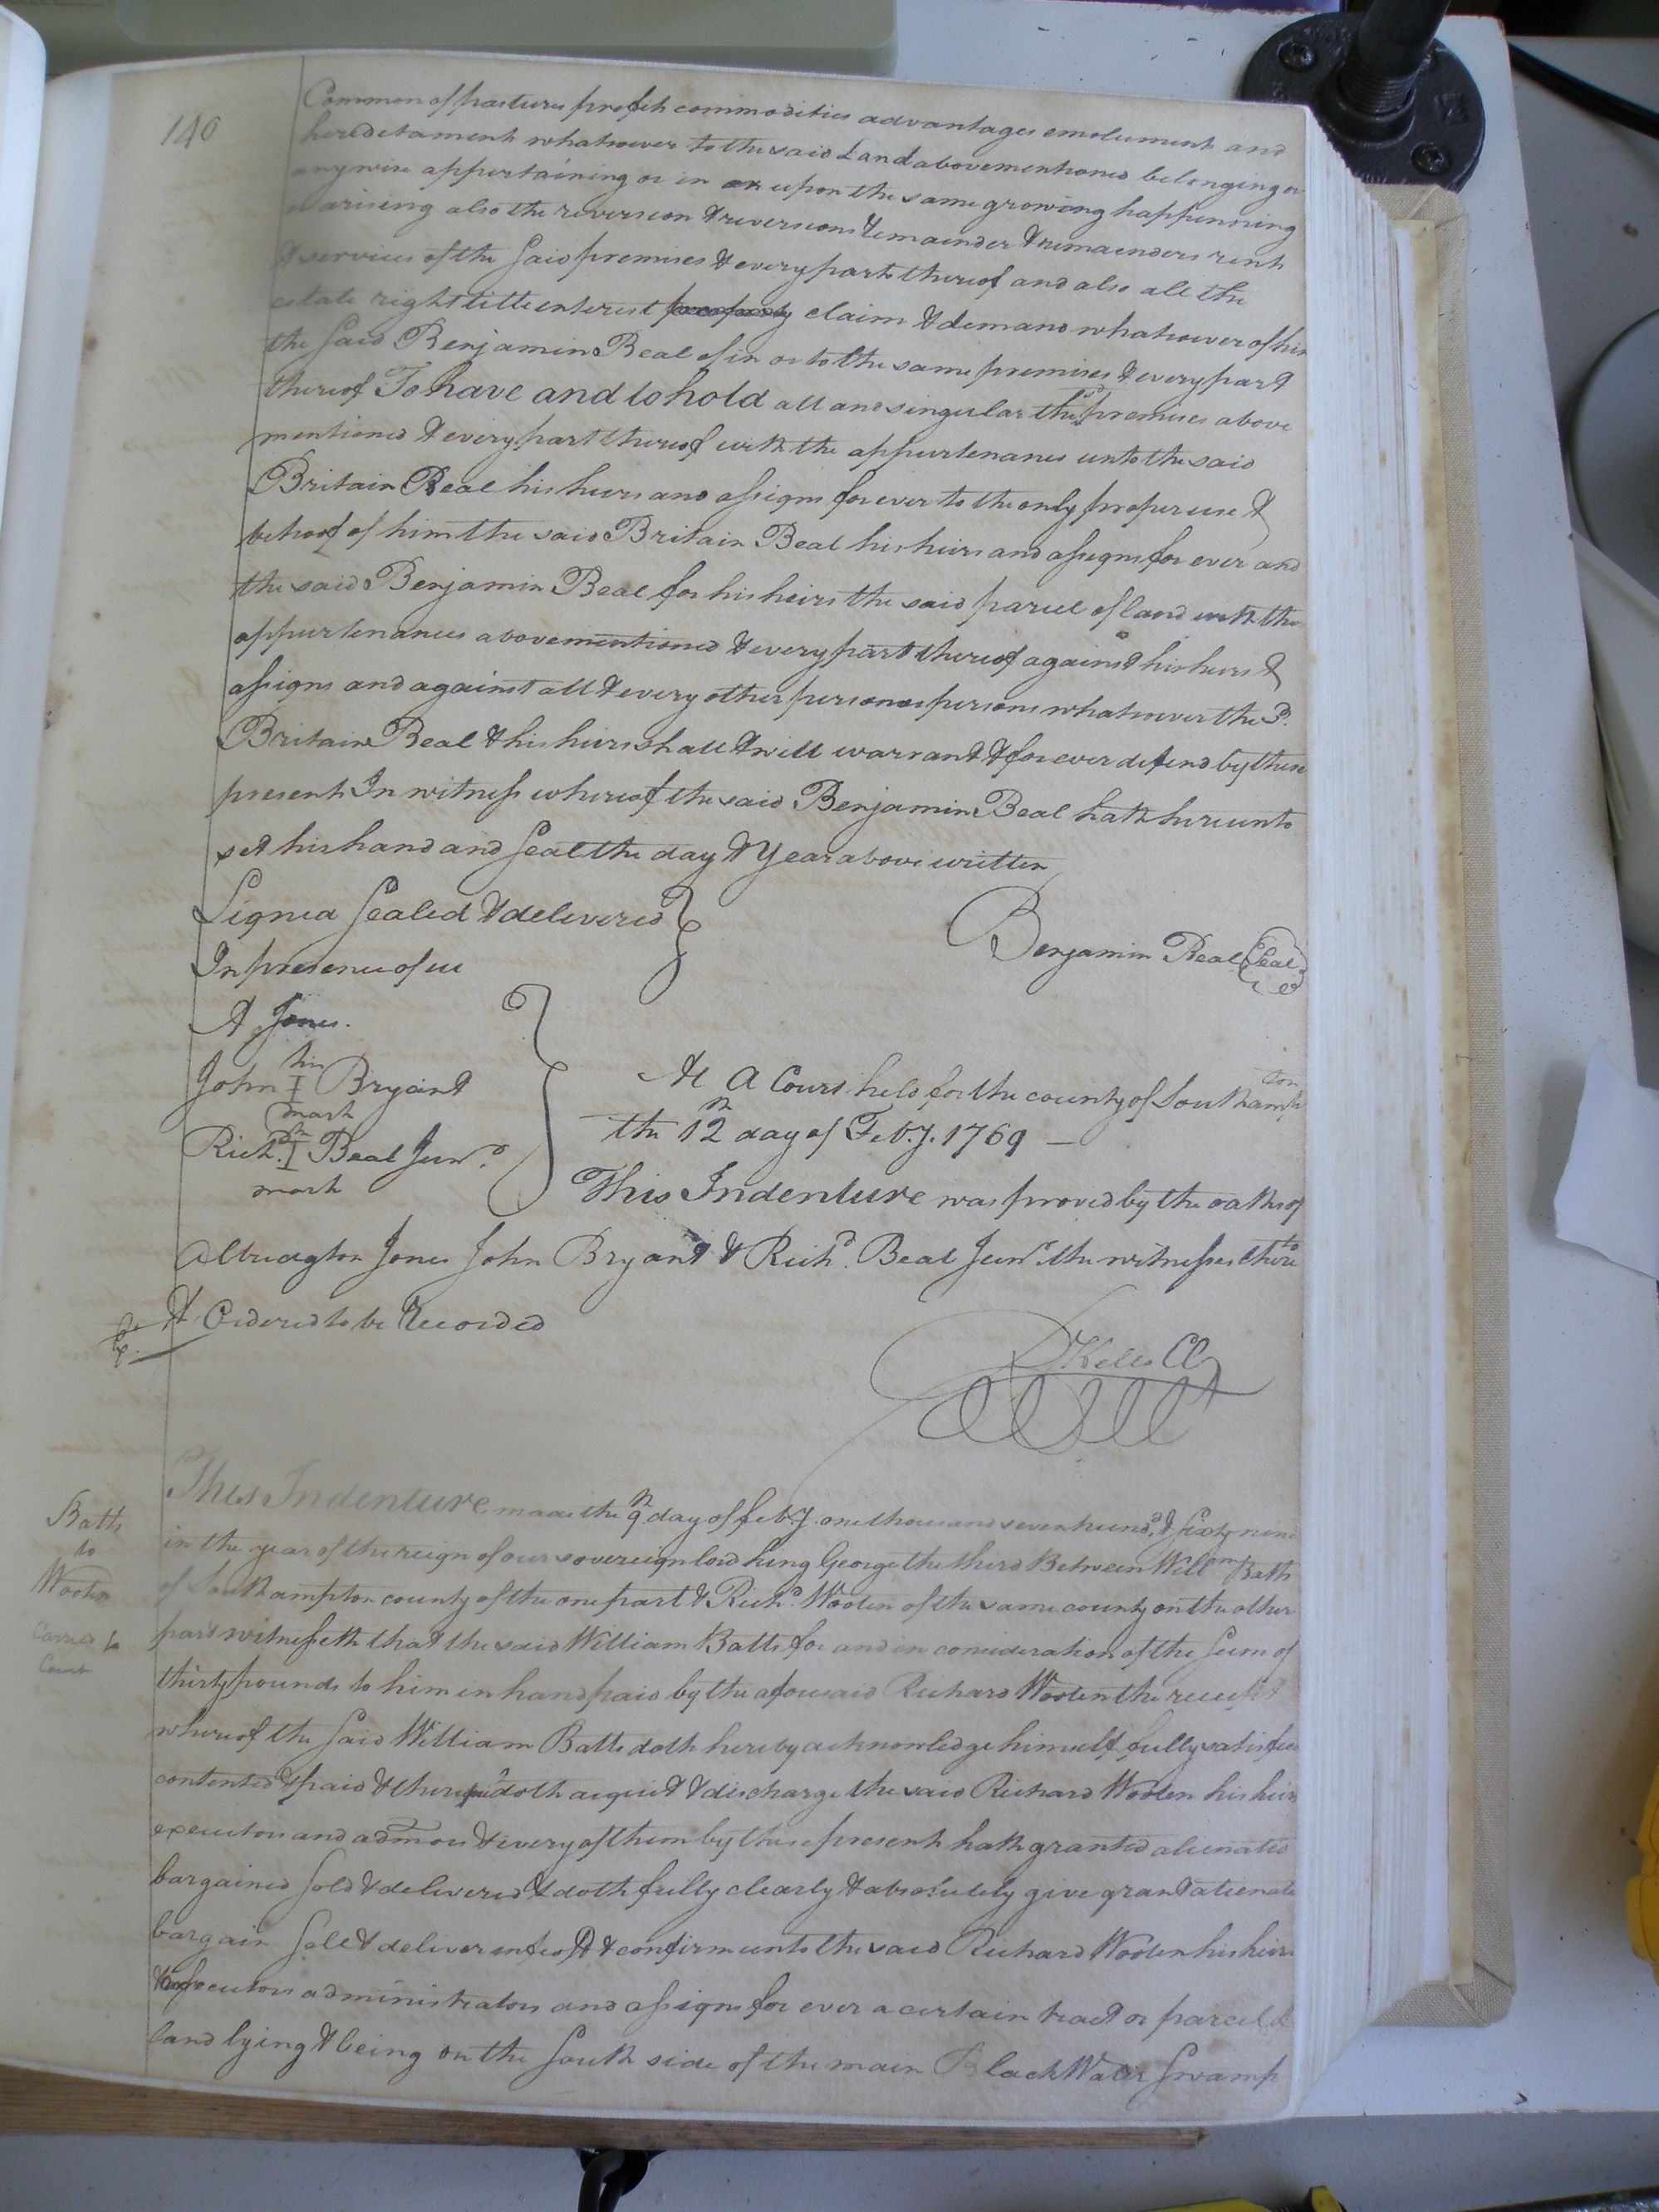 140
Common of pastures profits commodities advantages emoluments and
heredetaments whatsoever to the said Land abovementioned belonging or
any wise appertaining or in or upon the same growing happening
or arising also the reversion & reversions Remainder & remaenders rents
& services of the said premises & every part thereof and also all the
estate right title enterest property claim & demand whatsoever of him
the said Benjamin Beal of in or to the same premises & every part
thereof To have and to hold all and singular the sd premises above
mentioned & every part thereof with the appurtenances unto the said
Britain Beal his heirs and assigns for ever to the only proper use &
behoof of him the said Britain Beal his heirs and assigns for ever and
the said Benjamin Beal for his heirs the said parcel of land with the
appurtenances abovementioned & every part thereof against his heirs &
assigns and against all & every other person or persons whatsoever the Sd.
Britain Beal & his heirs shall & will warrant & for ever defend by these
presents In witness whereof the said Benjamin Beal hath hereunto
set his hand and seal the day & Year above written
Signed Sealed & delivered
In presence of us
Benjamin Beal (Seal)
A Jones.
John his I mark Bryant
Richd. his I mark Beal Junr.
At A Court held for the county of Southampton
the 12th day of Feby. 1769 —
This Indenture was proved by the oaths of
Albridgton Jones John Bryant & Richd. Beal Junr. the witnesses thereto
& Ordered to be Recorded
R Kello CC
Batts
to
Wooten
Carried to
Court
This Indenture made the 9th day of Feby. one thousand seven hundd. & sixty nine
in the year of the reign of our sovereign lord king George the third Between Willm Batts
of Southampton county of the one part & Richd. Wooten of the same county on the other
part witnesseth that the said William Batts for and in consideration of the sum of
thirty pounds to him in hand paid by the aforesaid Richard Wooten the receipt
whereof the said William Batts doth hereby acknowledge himself fully satisfied
contented & paid & thereof doth acquit & discharge the said Richard Wooten his heirs
executors and admors & every of them by these presents hath granted alienated
bargained Sold & delivered & doth fully clearly & absolutely give grant alienate
bargain sell & deliver infeoff & confirm unto the said Richard Wooten his heirs
executors administrators and assigns for ever a certain tract or parcel of
land lying & being on the South side of the main Black Water Swamp